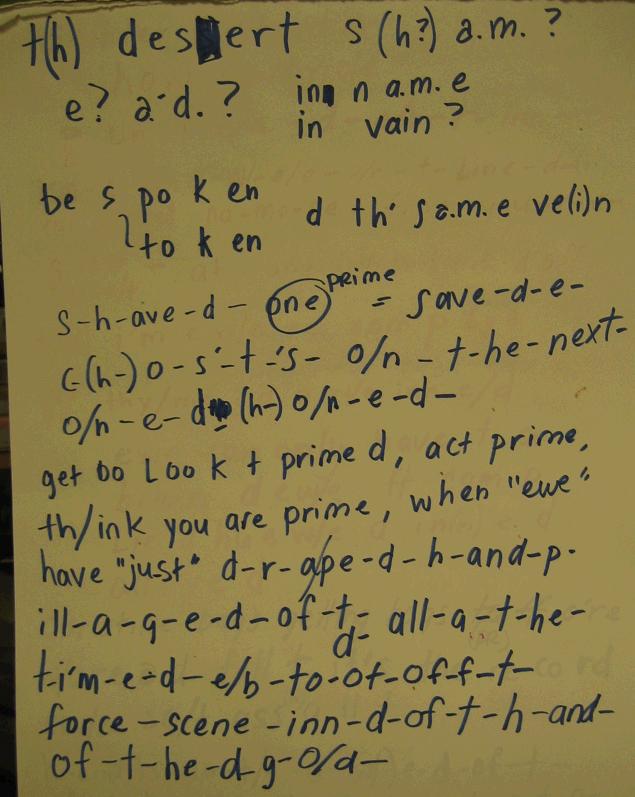 t(h) dessert s(h?) a.m. ?
e? a·d. ? in n a.m. e
in vain ?
be s po k en
to k en d th' s a.m. e ve(i)n
s-h-ave-d- one prime = save-d-e-
c-(h-) o-s'-t-'s- o/n - t-he-next-
o/n-e-d- (h-) o/n-e-d-
get oo Loo k t prime d, act prime,
th/ink you are prime, when "ewe"
have "just" d-r-ape-d-h-and-p-
ill-a-g-e-d-of-t- d- all-a-t-he-
t-i'm-e-d-e/b-to-of-of-f-t-
force-scene-inn-d-of-t-h-and-
of-t-he-d g-o/a-